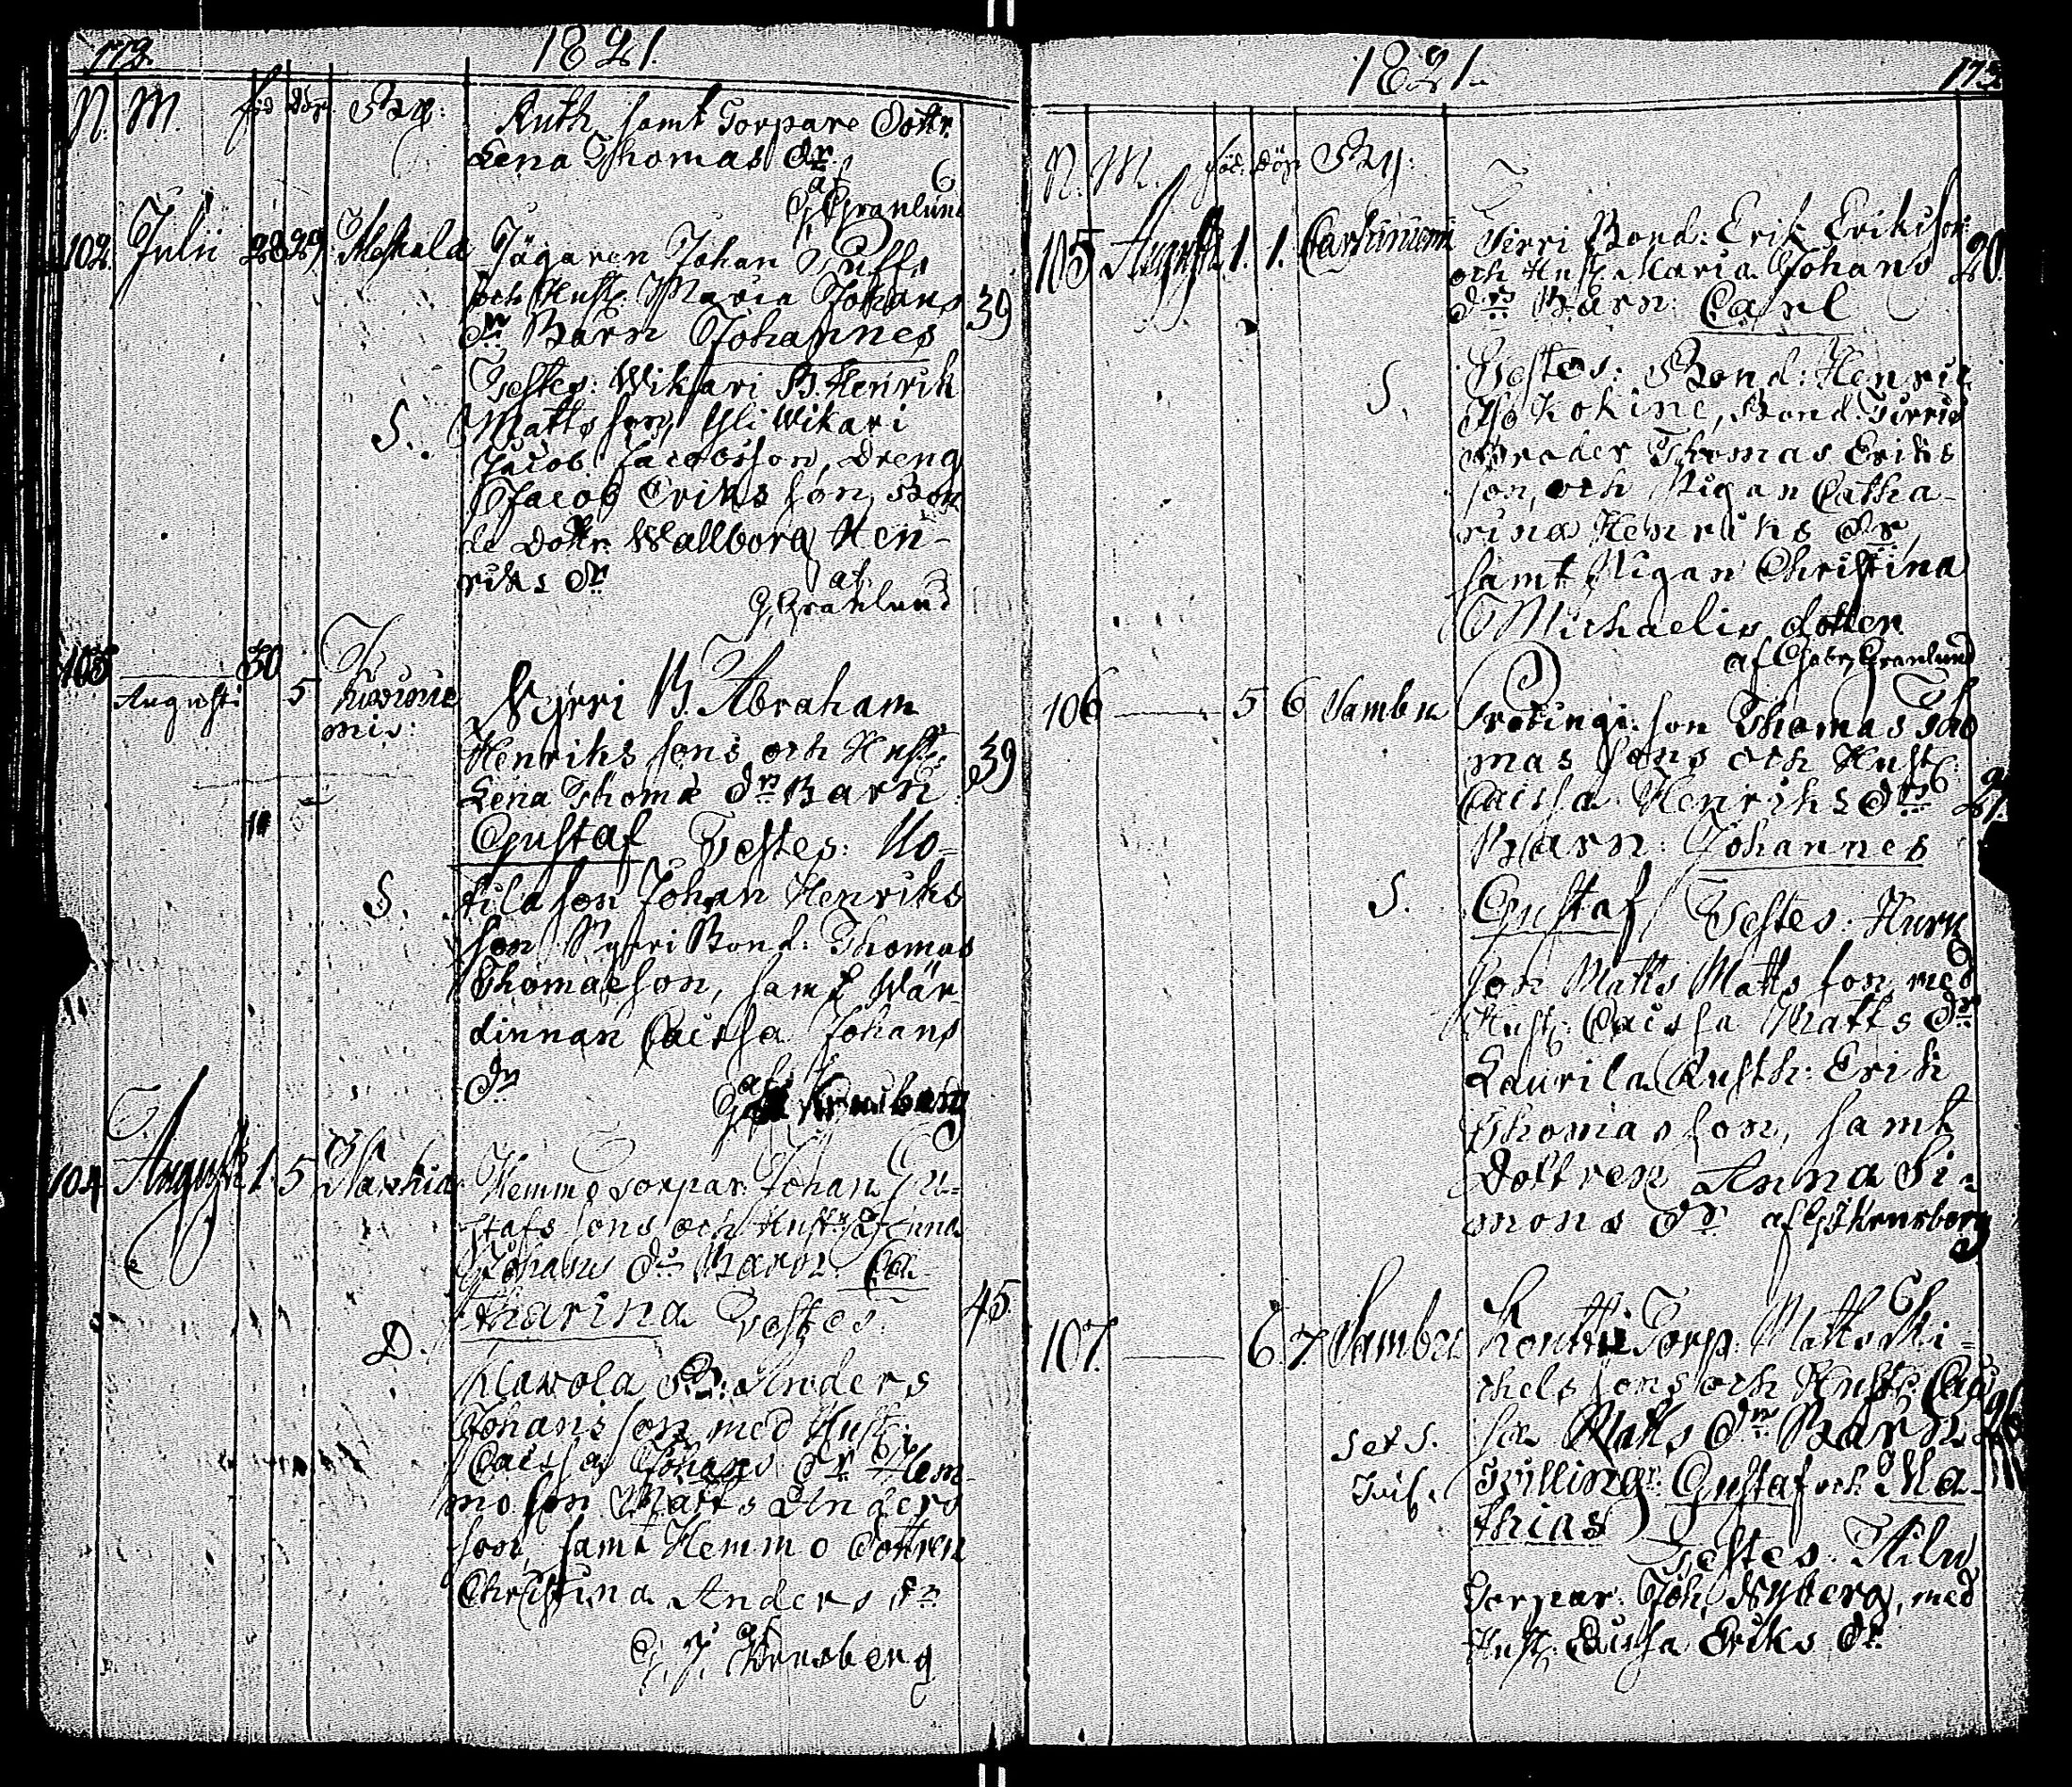 172.
1821.
N. M. föd döp. By:
Ruth, samt Torpare Dottr.
Lena Thomas dr.
af
G. Granlund
102. Julii 28 29.
Jägaren Johan Wuffs
och Hust. Maria Johans
dr Barn Johannes
39
Testes: Wikari B. Henrik
S. Mattsson, Yli Wikari
Jacob Jacobsson, Dreng
Jacob Eriksson, Bon
de Dottr. Wallborg Hen-
riks dr
af
G. Granlund
103 30
Augusti 5
mis:
Nyrri B. Abraham
Henriks sons och Hust.
39
Lena Thoma dr Barn:
Gustaf Testes: Ko-
S. tila son Johan Henriks
son Nyrri Bond. Thomas
Thomasson, samt Wär
dinnan Caissa Johans
dr
af
104 August 1. 5
Hemmo Torpar. Johan Gu-
stafs sons och Hust. Anna
Johans dr Barn. Ca-
tharina Testes:
45.
D.
Klavola B: Anders
Johansson med Hust.
Caissa Johans dr Hem-
mo son Matts Anders
son, samt Hemmo Dottren
Christina Anders dr
af
G. J. Krusberg
1821.
173
N. M. föd. döp By:
105 Augusti 1. 1. Karkuniemi
Tirri Bond: Erik Eriksson
och Hust. Maria Johans
20.
dr Barn: Carl
Testes: Bond: Henric
S.
Kokine, Bond. Tirris
Broder Thomas Eriks
son, och Pigan Catha-
rina Henriks dr,
samt Pigan Christina
Michaelis dotter.
af Gabr. Granlund
106 5 6 Sambu
son Thomas Tho
mas sons och Hust.
Caissa Henriks dr
Barn: Johannes
S. Gustaf Testes: Huru
son Matts Matts son med
Hust: Caissa Matts dr
Laurila Rusth: Erik
Thomasson, samt
Dottren Anna Si-
mons dr. af G J Krusberg
107. 6. 7. Sambu
Kontti Torp. Matts Mi-
chels sons och Hust. Cais
sa Matts dr Barn
S et S.
Tvillingr. Gustaf och Ma-
thias
Testes.
Torpar: Joh. Nyberg, med
Hust. Caissa Eriks dr.